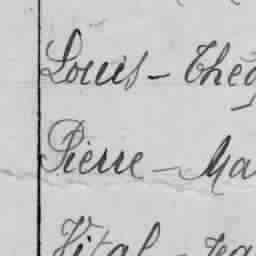 Louis - Théo
Pierre - Ma
Vital - Fa